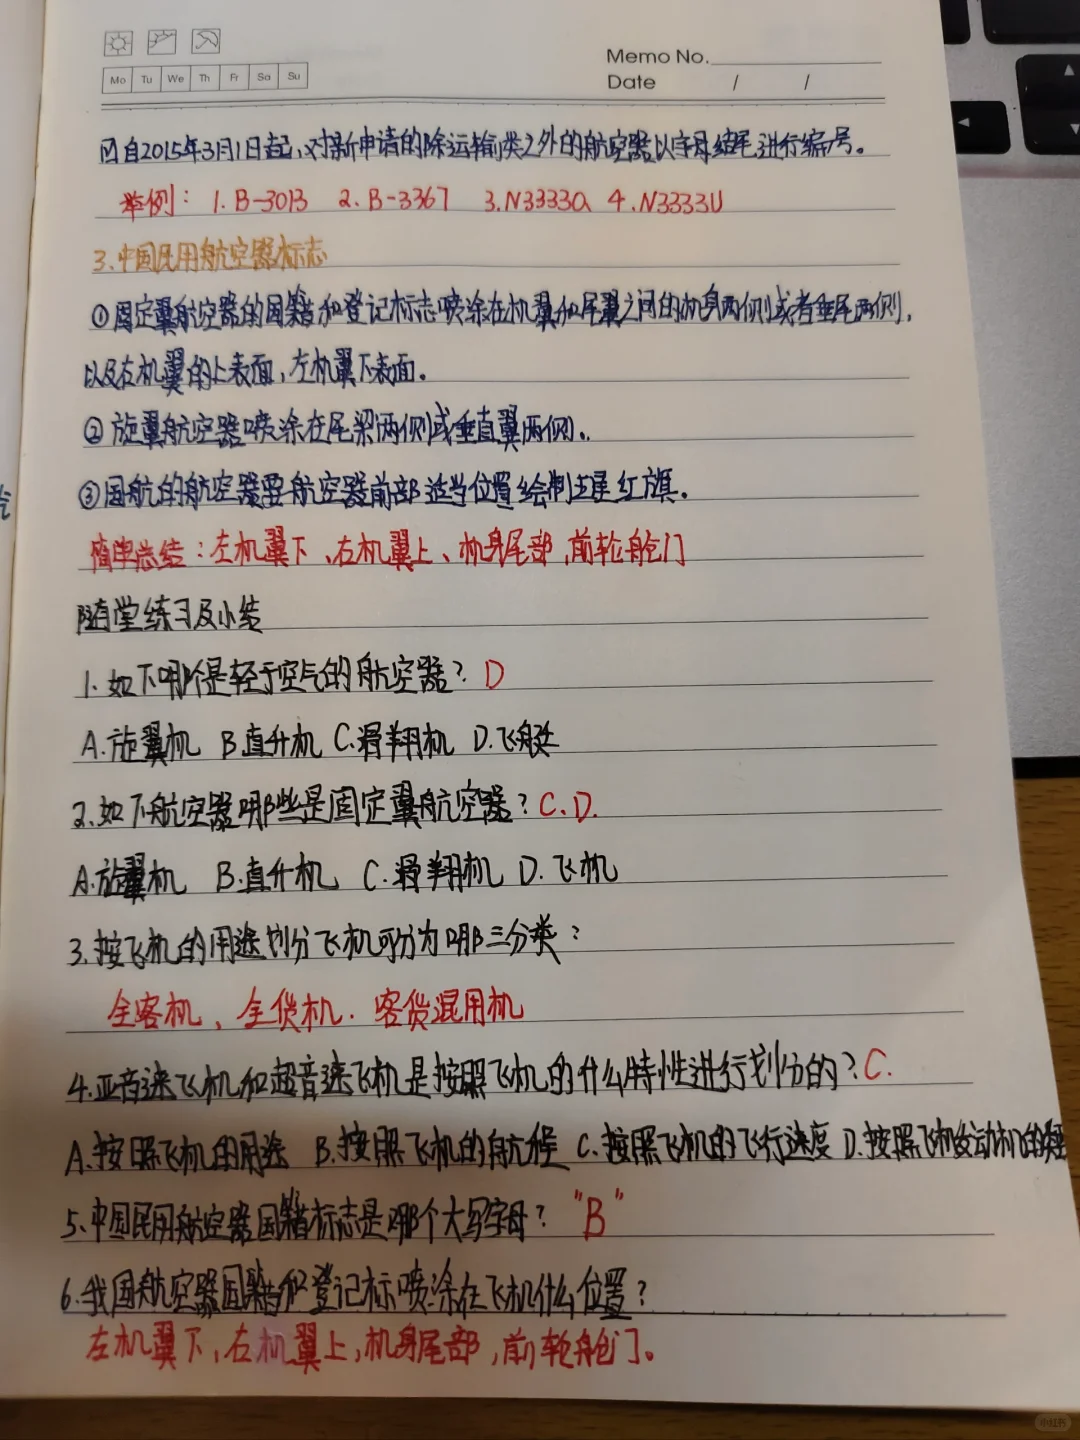 Memo No.
Mo Tu We Th Fr Sa Su
Date / /
自2015年3月1日起,对新申请的除运输类之外的航空器以字母结尾进行编号。
举例: 1.B-3013 2.B-3367 3.N3333A 4.N3333U
3.中国民用航空器标志
①固定翼航空器的国籍和登记标志喷涂在机翼和尾翼之间的机身两侧或者垂尾两侧,
以及右机翼的上表面,左机翼下表面。
②旋翼航空器喷涂在尾梁两侧或垂直翼两侧。
③国航的航空器要航空器前部适当位置绘制五星红旗.
简单总结:左机翼下、右机翼上、机身尾部,前轮舱门
随堂练习及小结
1.如下哪个是轻于空气的航空器? D
A.旋翼机 B.直升机 C.滑翔机 D.飞艇
2.如下航空器哪些是固定翼航空器? C.D.
A.旋翼机 B.直升机 C.滑翔机 D.飞机
3.按飞机的用途划分飞机可分为哪三分类?
全客机、全货机.客货混用机
4.亚音速飞机和超音速飞机是按照飞机的什么特性进行划分的? C.
A.按照飞机的用途 B.按照飞机的航程 C.按照飞机的飞行速度 D.按照飞机发动机的类
5、中国民用航空器国籍标志是哪个大写字母? "B"
6.我国航空器国籍和登记标喷涂在飞机什么位置?
左机翼下,右机翼上,机身尾部,前轮舱门。
小红书